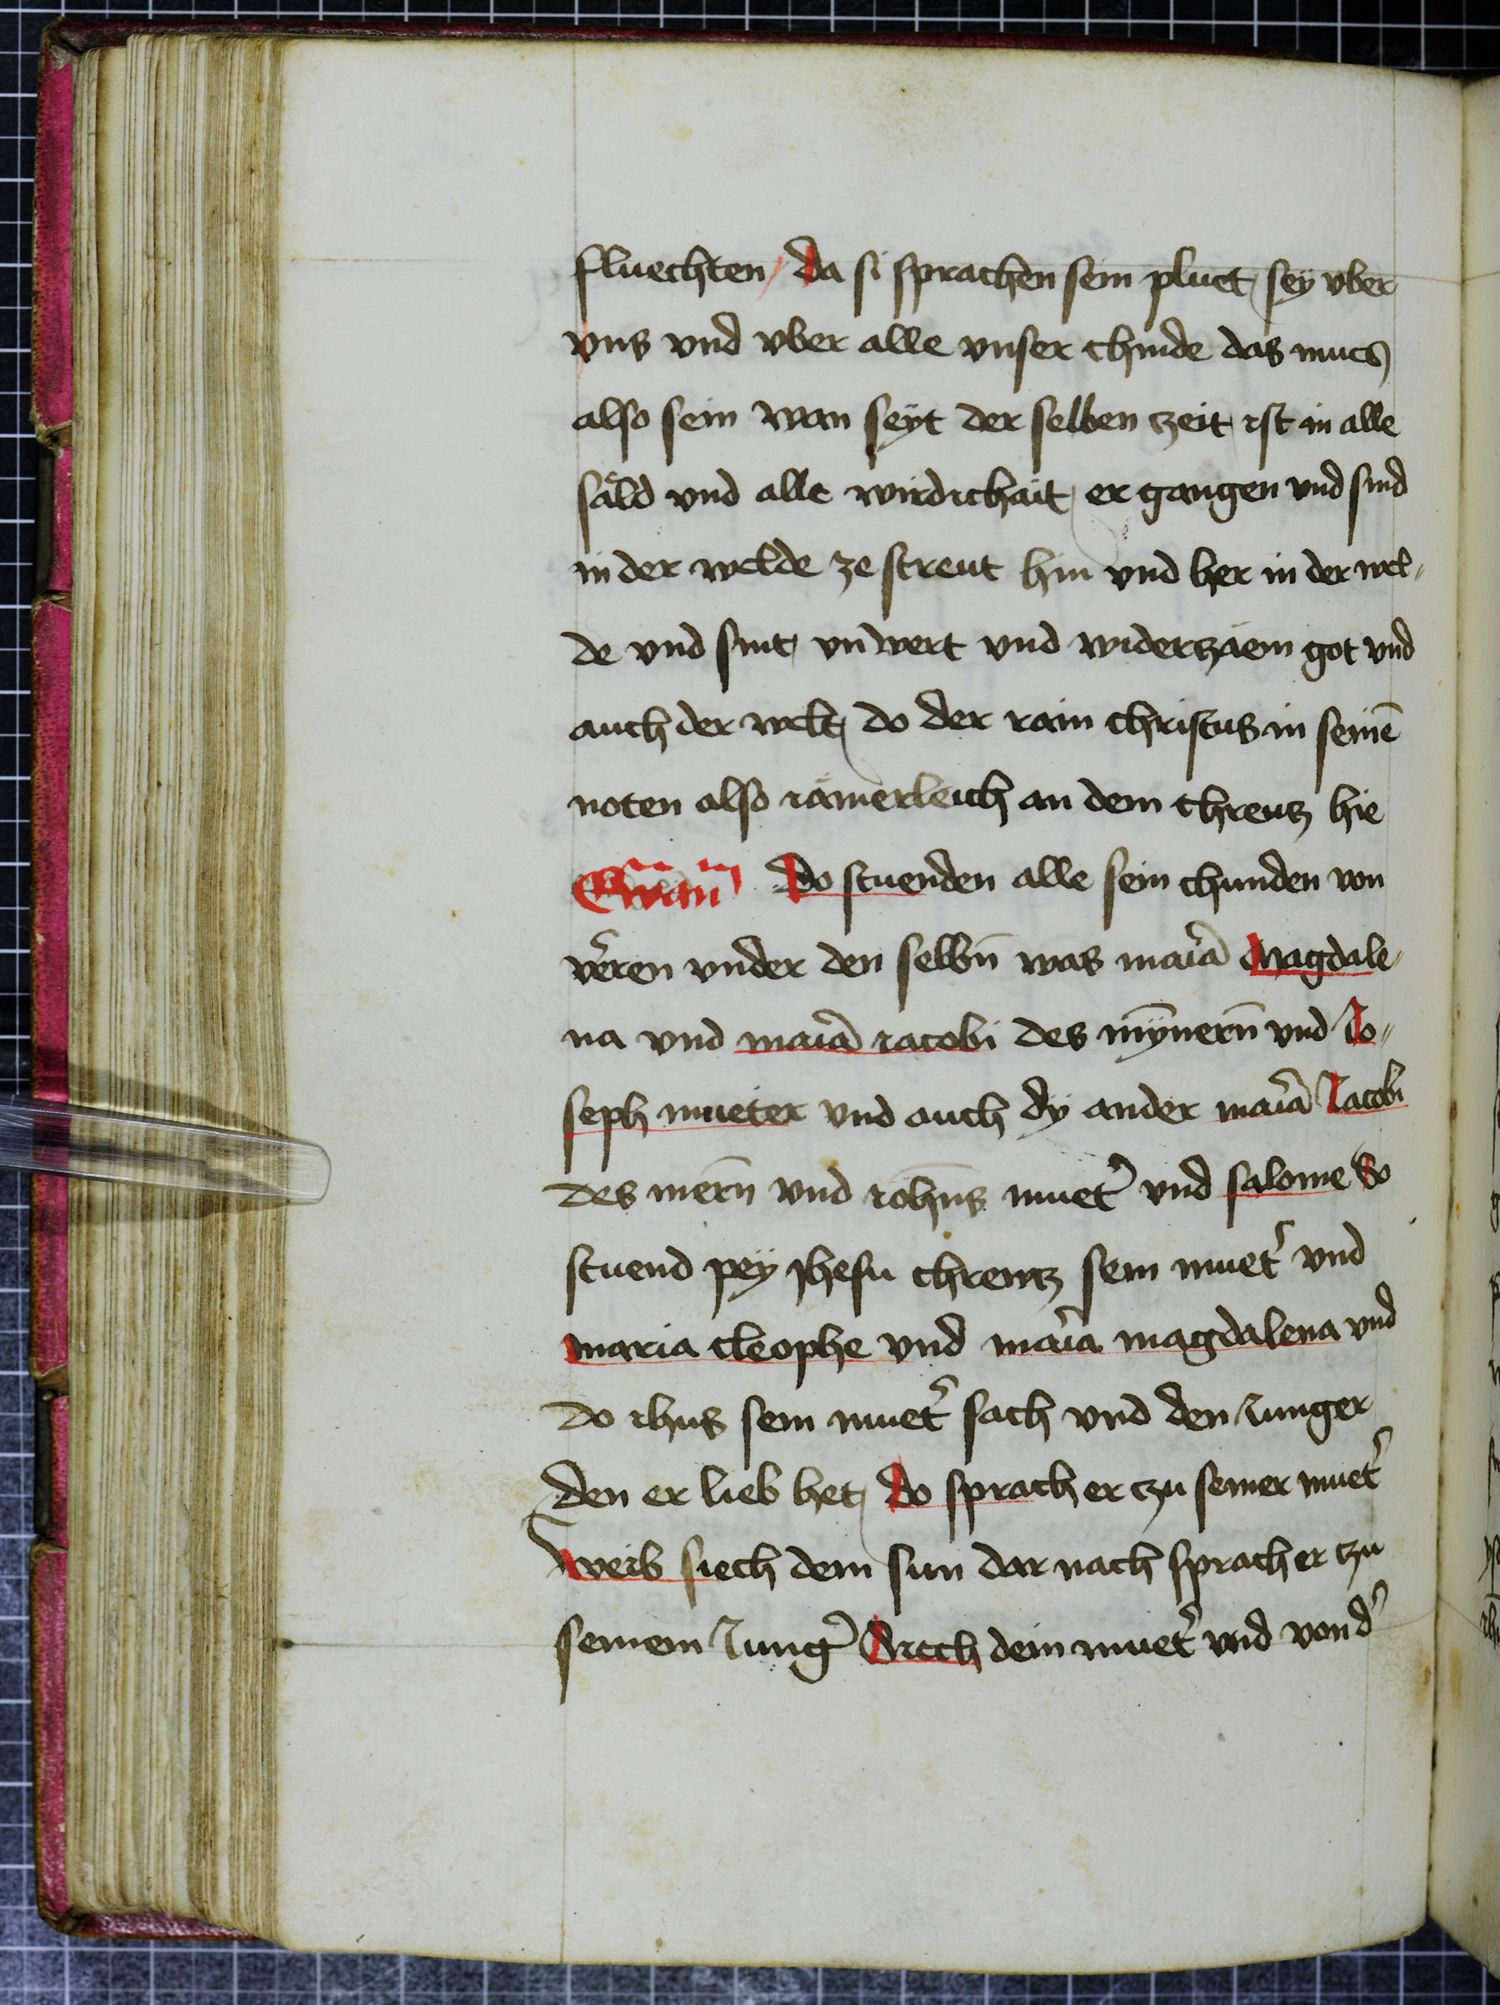 fluechten / Da si sprachen sein pluet sey vber
vns vnd vber alle vnser chinde das mues
also sein wan seyt der selben zeit ist in alle
säld vnd alle wirdichait er gangen vnd sind
in der welde ze streut hin vnd her in der wel-
de vnd sint vnwert vnd widerzäem got vnd
auch der welt do der rain christus in seinē
noten also iämerleich an dem chreutz hie
Ewāḡ Do stuenden alle sein chunden von
verren vnder den selbn̄ was maria Magdale-
na vnd maria iacobi des mȳnern̄ vnd Jo-
seph mueter vnd auch dy ander maria Jacobi
des mern̄ vnd iohn̄s muet' vnd salome Do
stuend pey Jhesu chreutz sein muet' vnd
maria cleophe vnd maria magdalena vnd
do ihus sein muet' sach vnd den Junger
den er lieb het Do sprach er czu seiner muet'
Weib siech dein sun dar nach sprach er czu
seinem Jung' Siech dein muet' vnd von d'